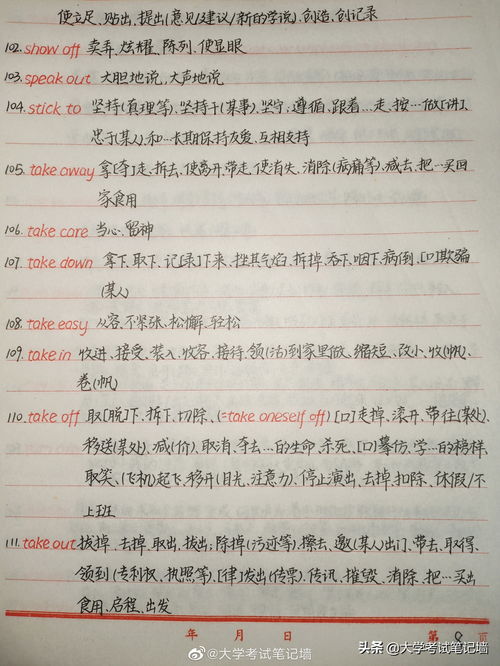 使立足、贴出、提出(意见/建议/新的学说)、创造、创记录
102. show off 卖弄、炫耀、陈列、使显眼
103. speak out 大胆地说、大声地说
104. stick to 坚持(真理等)、坚持干(某事)、坚守、遵循、跟着…走、按…做[讲]、
忠于(某人)、和…长期保持友爱、互相支持
105. take away 拿[夺]走、拆去、使离开、带走、使消失、消除(病痛等)、减去、把…买回
家食用
106. take care 当心、留神
107. take down 拿下、取下、记[录]下来、挫其气焰、拆掉、吞下、咽下、病倒、[口]欺骗
(某人)
108. take easy 从容、不紧张、松懈、轻松
109. take in 收进、接受、装入、收容、接待、领(活)到家里做、缩短、改小、收(帆)、
卷(帆)
110. take off 取[脱]下、拆下、切除、(=take oneself off)[口]走掉、滚开、带往(某处)、
移送(某处)、减(价)、取消、夺去…的生命、杀死、[口]摹仿、学…的榜样、
取笑、(飞机)起飞、移开(目光、注意力)、停止演出、去掉、扣除、休假/不
上班
111. take out 拔掉、去掉、取出、拔出、除掉(污迹等)、擦去、邀(某人)出门、带去、取得、
领到(专利权、执照等)、[律]发出(传票)、传讯、摧毁、消除、把…买出
食用、启程、出发
年 月 日 第 8 页
@大学考试笔记墙
头条 @大学考试笔记墙